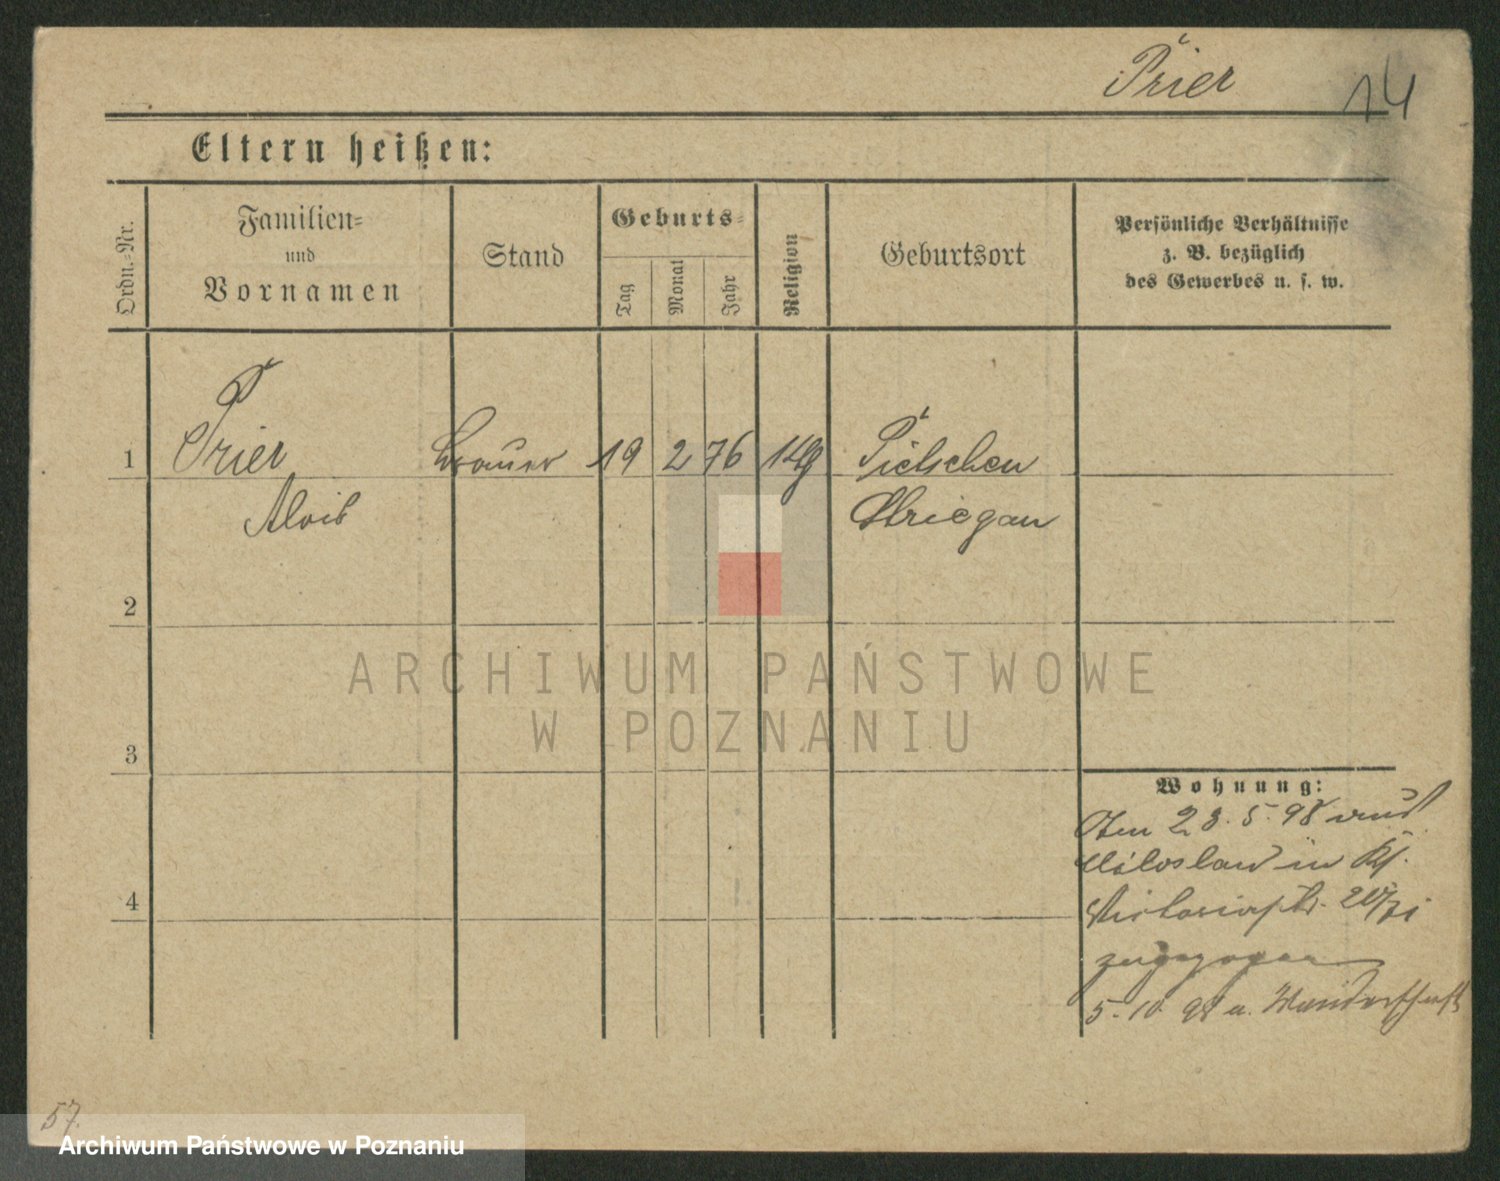 Prier 14
Eltern heißen:
Ordn.-Nr.
Familien-
und
Vornamen
Stand
Geburts-
Tag
Monat
Jahr
Religion
Geburtsort
Persönliche Verhältnisse
z. B. bezüglich
des Gewerbes u. s. w.
1 Prier Brauer 19 2 76 Pielschen
Alois Striegau
2
ARCHIWUM PAŃSTWOWE
W POZNANIU
3
Wohnung:
Am 23. 5. 98 und
Miloslaw in
Victoriastr. 20/21
zugezogen
5. 10. 98 a. Wanderschaft
4
57.
Archiwum Państwowe w Poznaniu